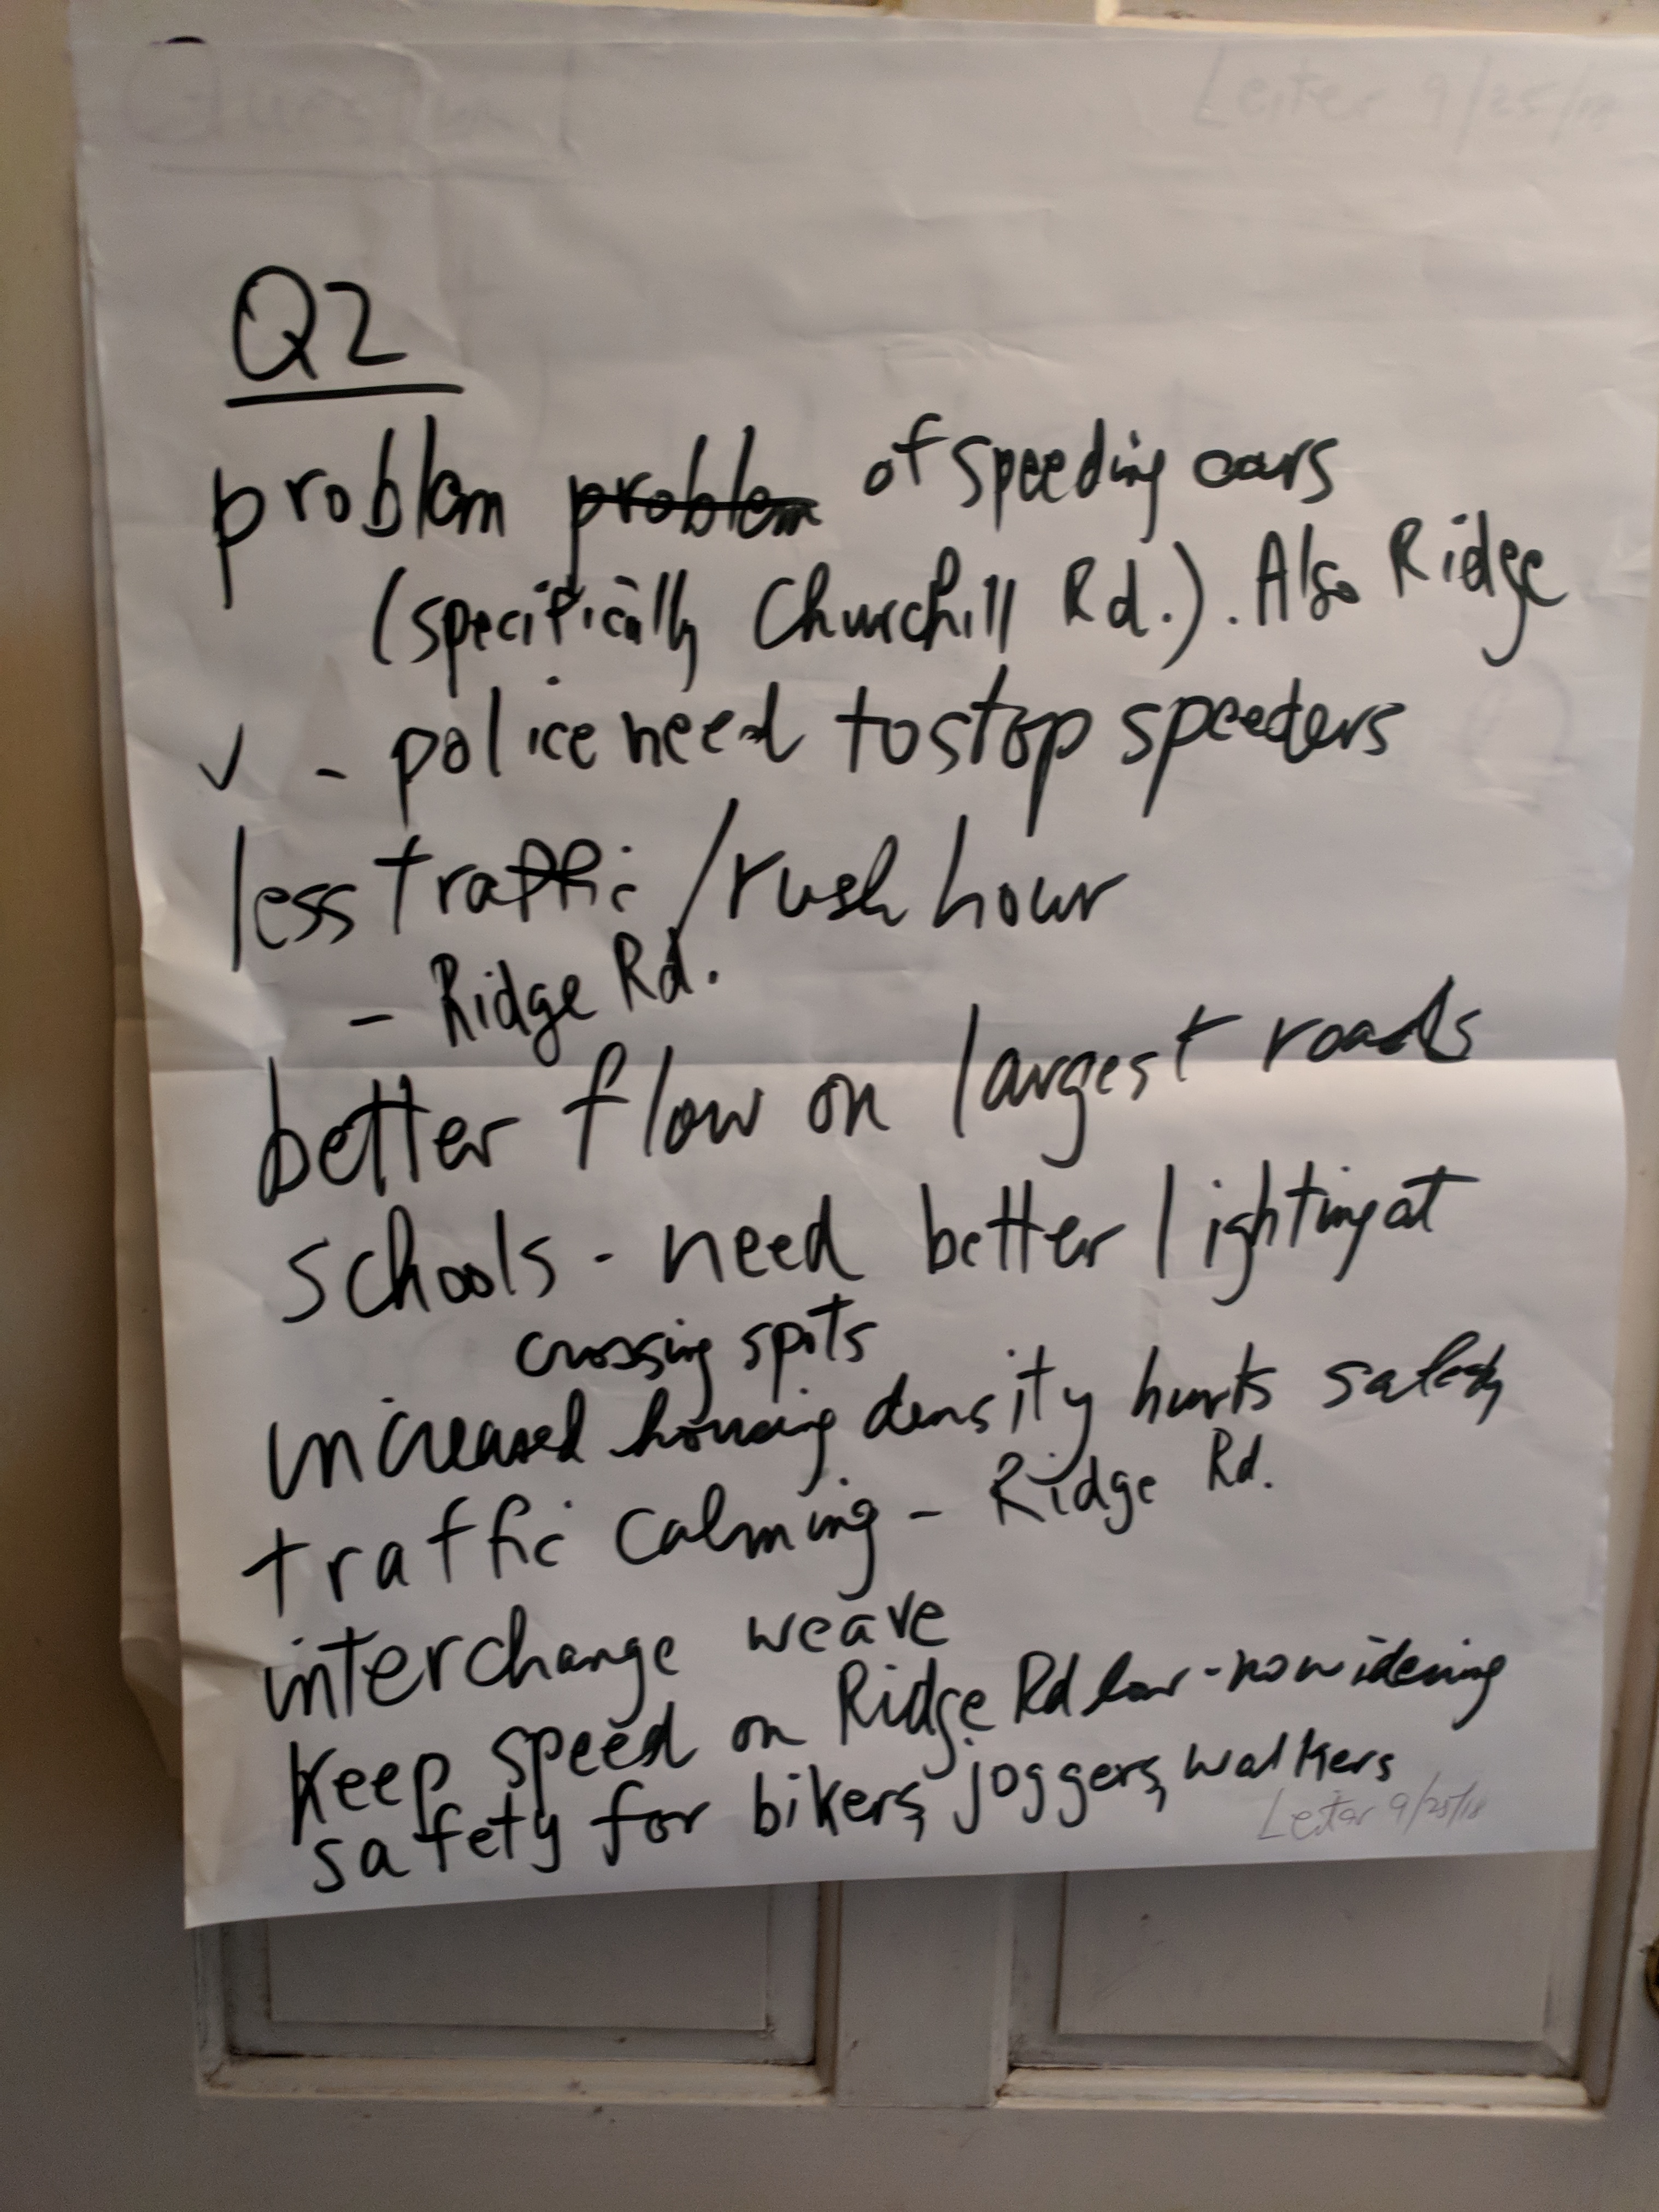 Leiter 9/25/18
Q2
problem problem of speeding cars
(specifically Churchill Rd.). Also Ridge
✓ - police need to stop speeders
less traffic / rush hour
- Ridge Rd.
better flow on largest roads
schools - need better lighting at
crossing spots
increased housing density hurts safety
traffic calming - Ridge Rd.
interchange weave
Keep speed on Ridge Rd low - no widening
safety for bikers, joggers, walkers
Leiter 9/25/18